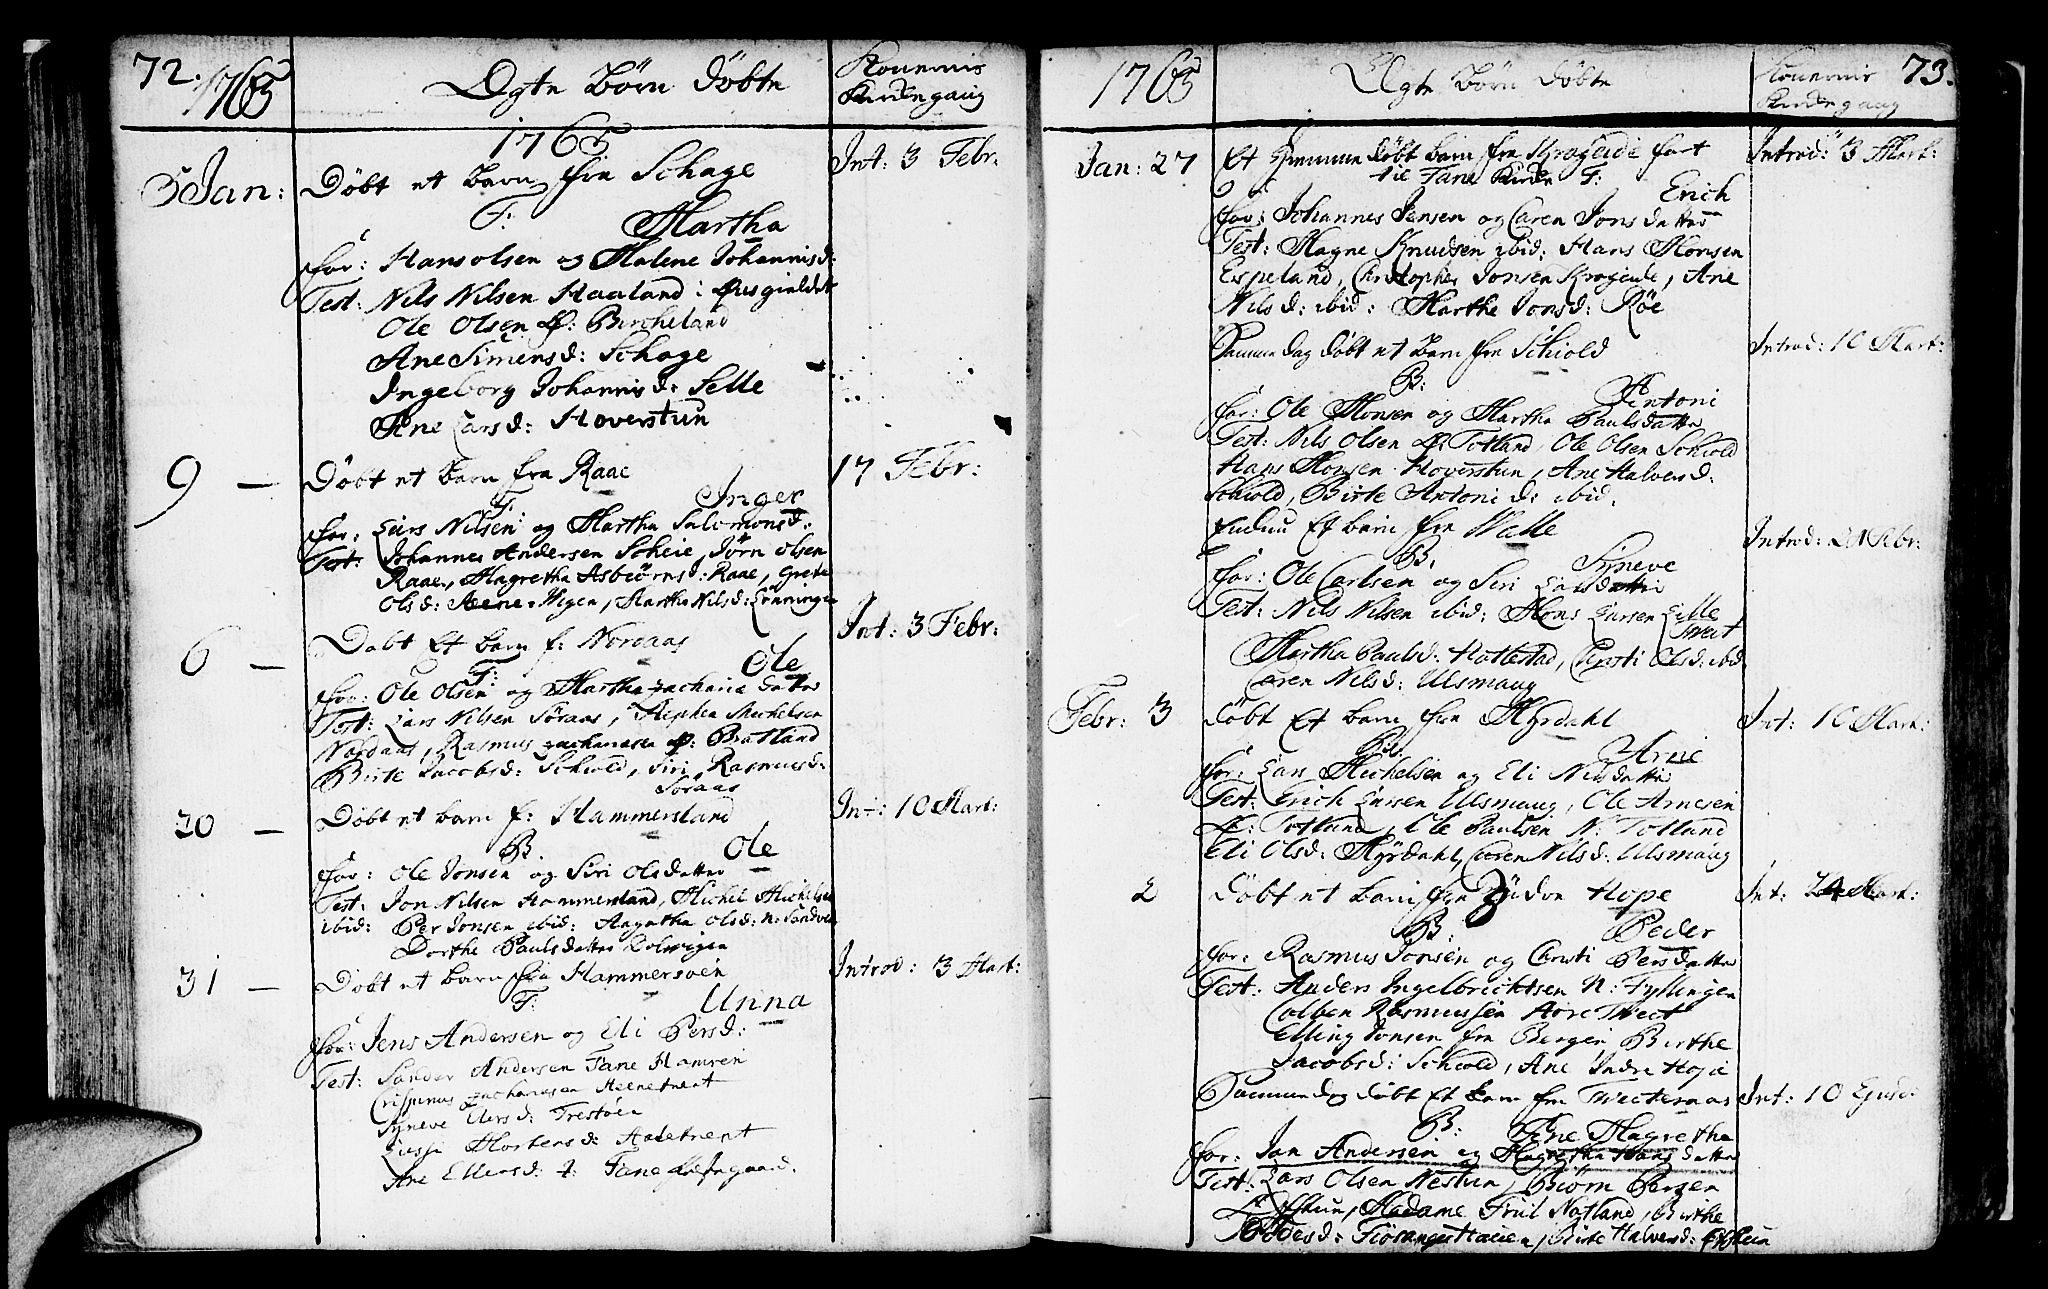 72. 1765 Ægte Børn döbte Konernis
Kirkegang
1765
5 Jan: Döbt et Barn fra Schage Int: 3 Febr:
F: Martha
for: Hans Olsen og Malene Johannisd:
Test: Nils Nilsen Haaland: Qusgieldet
Ole Olsen Ø: Bircheland
Ane Simensd: Schage
Ingeborg Johannisd: Selle
Ane Larsd: Hoverstun
9 — Döbt et barn fra Raae 17 Febr:
F: Inger
for: Lars Nilsen og Martha Salomonsd:
Test: Johannes Andersen Scheie, Jörn Olsen
Raae, Magretha Asbiörnsd: Raae, Grete
Olsd: Wigen, Martha Nilsd: Lönningen
6 — Döbt Et barn f: Nordaas Int: 3 Febr:
F: Ole
for: Ole Olsen og Martha Zacharia datter
Test: Lars Nilsen Söraas, Stephen Michelsen
Nordaas, Rasmus Zachariasen Ø: Bratland
Birte Jacobsd: Schiold, Siri Rasmusd:
Söraas
20 — Döbt et barn f: Hammersland Int: 10 Mart:
B. Ole
for: Ole Jonsen og Siri Olsdatter
Test: Jon Nilsen Hammersland, Michel Michelsen
ibid: Per Jonsen ibid: Aagatha Olsd: N: Sandven
Dorthe Paulsdatter Rolwigen
31 — Döbt et barn fra Hammersöen Introd: 3 Mart:
F: Unna
for: Jens Andersen og Eli Persd:
Test: Sander Andersen Fane Hamren
Crispinus Zachariasen
Syneve Elersd: Trestöen
Mortensd:
Ane Ellersd: f: Fane Præstegaard.
1765 Ægte Börn döbte Konernis
Kirkegang 73.
Jan: 27 Et hiemme döbt barn fra Krogeide fört Introd: 3 Mart:
til Fane Kirke F:
Erich
for: Johannes Jensen og Caren Jonsdatter
Test: Magne Knudsen ibid: Hans Monsen
Espeland, Christopher Jonsen Krogeide, Ane
Nilsd: ibid: Marthe Jonsd: Röe
Samme dag döbt et Barn fra Schiold Introd: 10 Mart:
B: Antoni
for: Ole Monsen og Martha Paulsdatter
Test: Nils Olsen Ø: Totland, Ole Olsen Schiold
Hans Monsen Hoverstun, Ane Halversd:
Schiold, Birte Antoni d: ibid.
Endnu Et barn fra Walle Introd: 21 Febr:
B. Syneve
for: Ole Carlsen og Siri Larsdatter
Test: Nils Nilsen ibid: Mons Larsen Lille
Tveit
Martha Paulsd: Hattestad, Christi Olsd: ibid
Caren Nilsd: Ulsmaug
Febr: 3 döbt Et barn fra Myrdahl Int: 10 Mart:
B: Arne
for: Lars Michelsen og Eli Nilsdatter
Test: Erich Larsen Ulsmaug, Ole Arnesen
Ø: Totland, Ole Paulsen N: Totland
Eli Olsd: Myrdahl, Caren Nilsd: Ulsmaug
2 döbt et barn fra Indre Hope Int: 24 Mart:
B: Peder
for: Rasmus Jonsen og Christi Persdatter
Test: Anders Ingelbrichtsen N: Fyllingen
Colben Rasmussen Tveet
Elling Jonsen fra Bergen Birthe
Jacobsd: Schiold, Ane Indre Hope
Samme dag döbt Et barn fra Tveteraas Int: 10 Ejusd:
B: Ane Magretha
for: Jan Andersen og Magretha Hans datter
Test: Lars Olsen Nestun, Biörn Persen
Øfstun, Madame Friil Natland, Birthe
Fiösanger Hauen, Birte Halversd: Øfstun